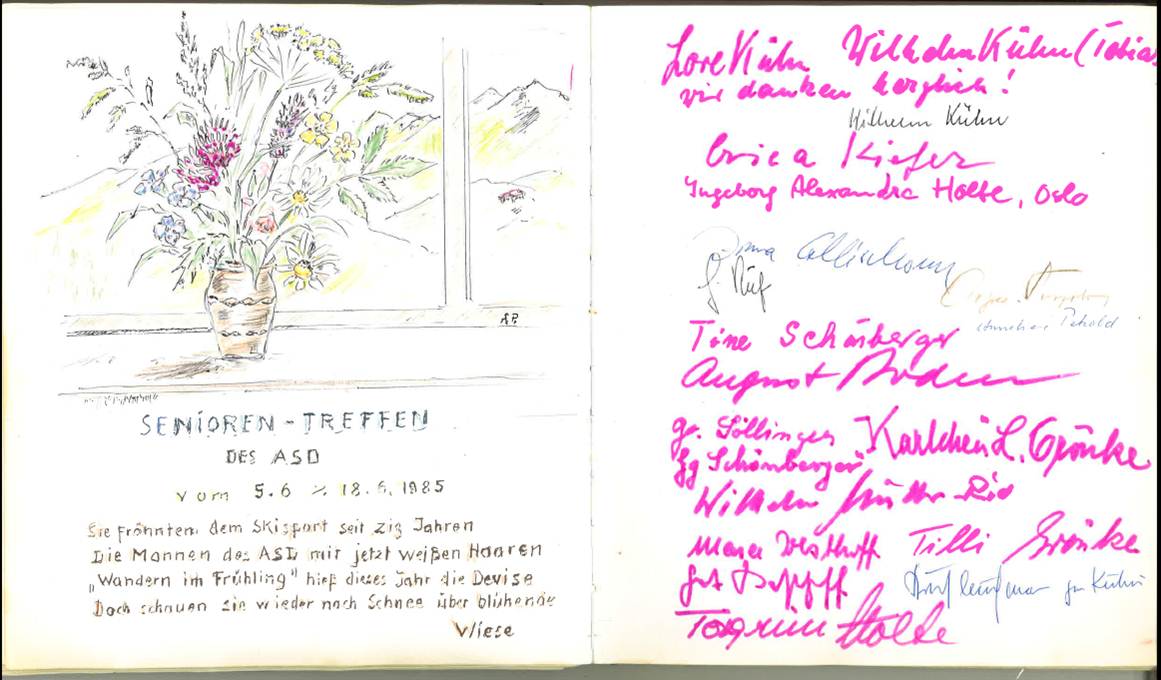 AP
SENIOREN - TREFFEN
DES ASD
vom 5.6 ⁒ 18.6.1985
Sie fröhnten dem Skisport seit zig Jahren
Die Mannen des ASD mir jetzt weißen Haaren
„Wandern im Frühling" hieß dieses Jahr die Devise
Doch schauen sie wieder nach Schnee über blühende
Wiese
Lore Kühn Wilhelm Kühn (Tobias
wir danken herzlich!
Wilhelm Kühn
Erica Kiefer
Ingeborg Alexandra Holte, Oslo
Tine Schönberger
August
gr. Söllinger Karlchen L. Grönke
Gg Schönberger
Wilhelm
Maria Westhoff Tilli Grönke
Kühn
Holte